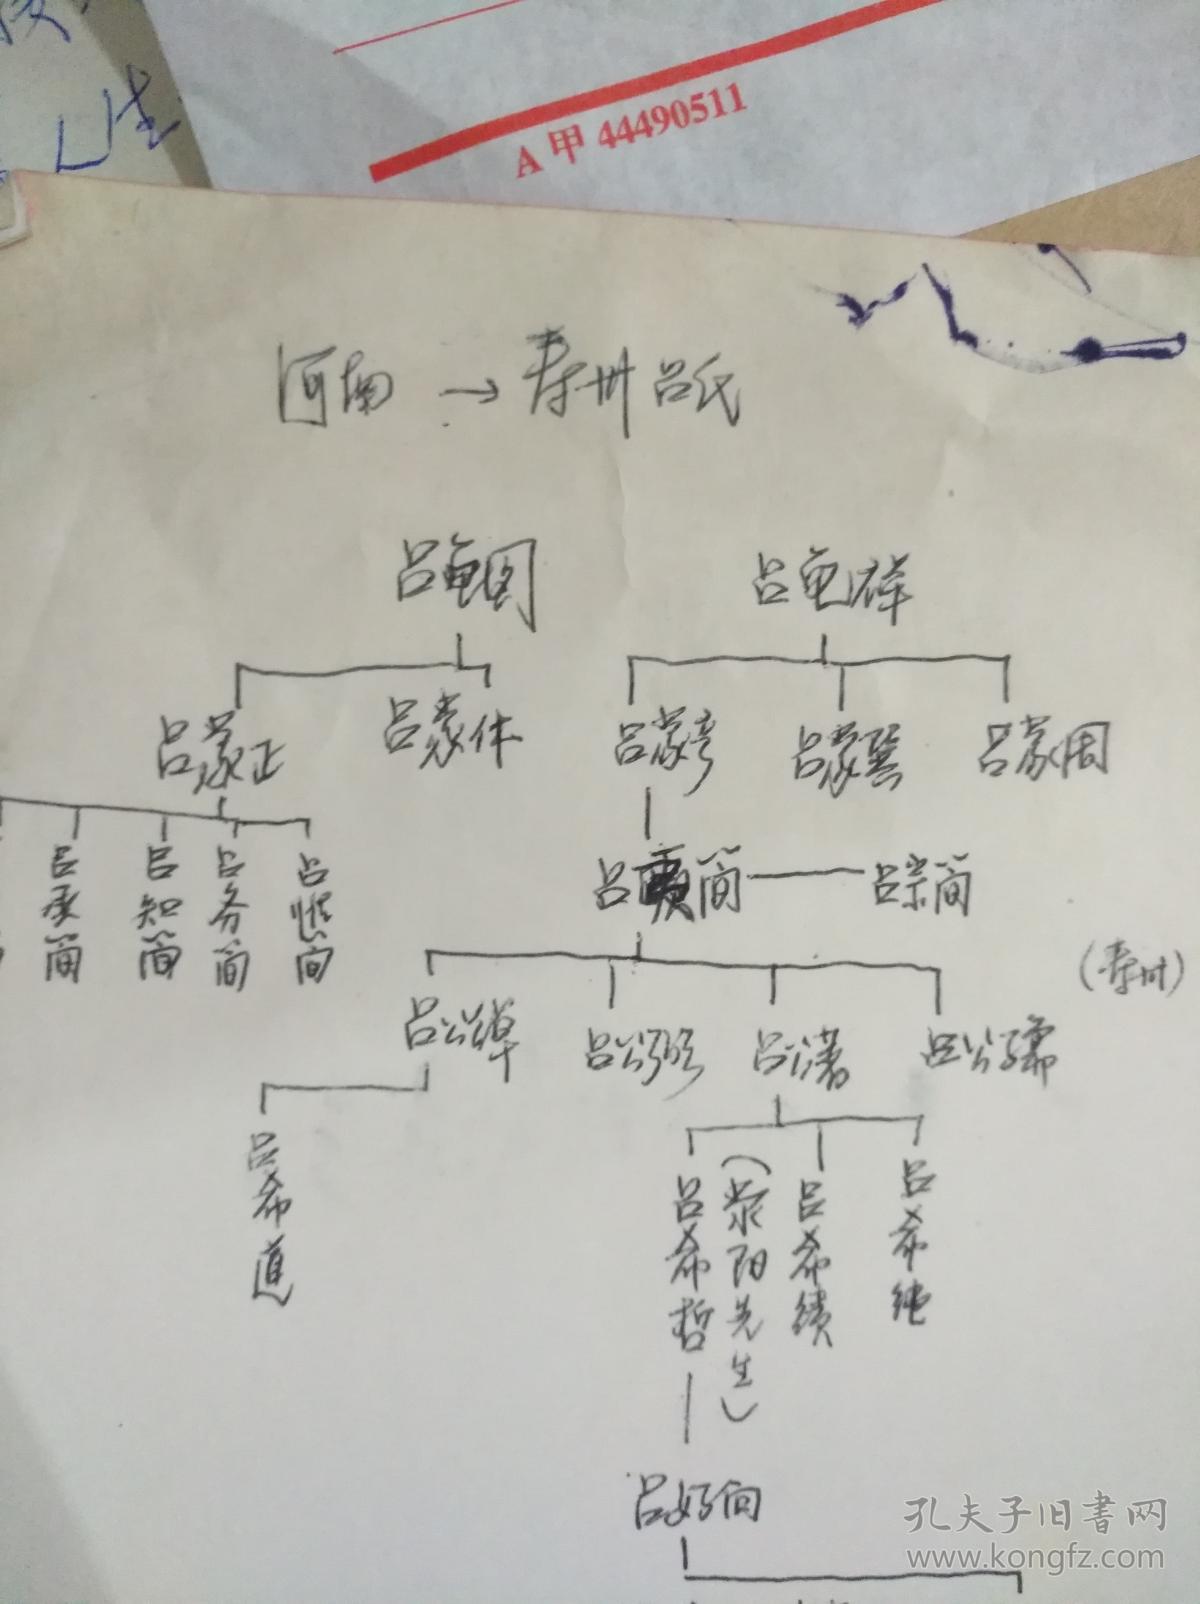 人生
A 甲 44490511
河南 → 寿州吕氏
吕龟图
吕龟祥
吕蒙正
吕蒙休
吕蒙亨
吕蒙巽
吕蒙周
吕承简
吕知简
吕务简
吕惟简
吕夷简
吕宗简
(寿州)
吕公绰
吕公弼
吕公著
吕公孺
吕希道
吕希哲
(荥阳先生)
吕希绩
吕希纯
吕好问
孔夫子旧书网
www.kongfz.com